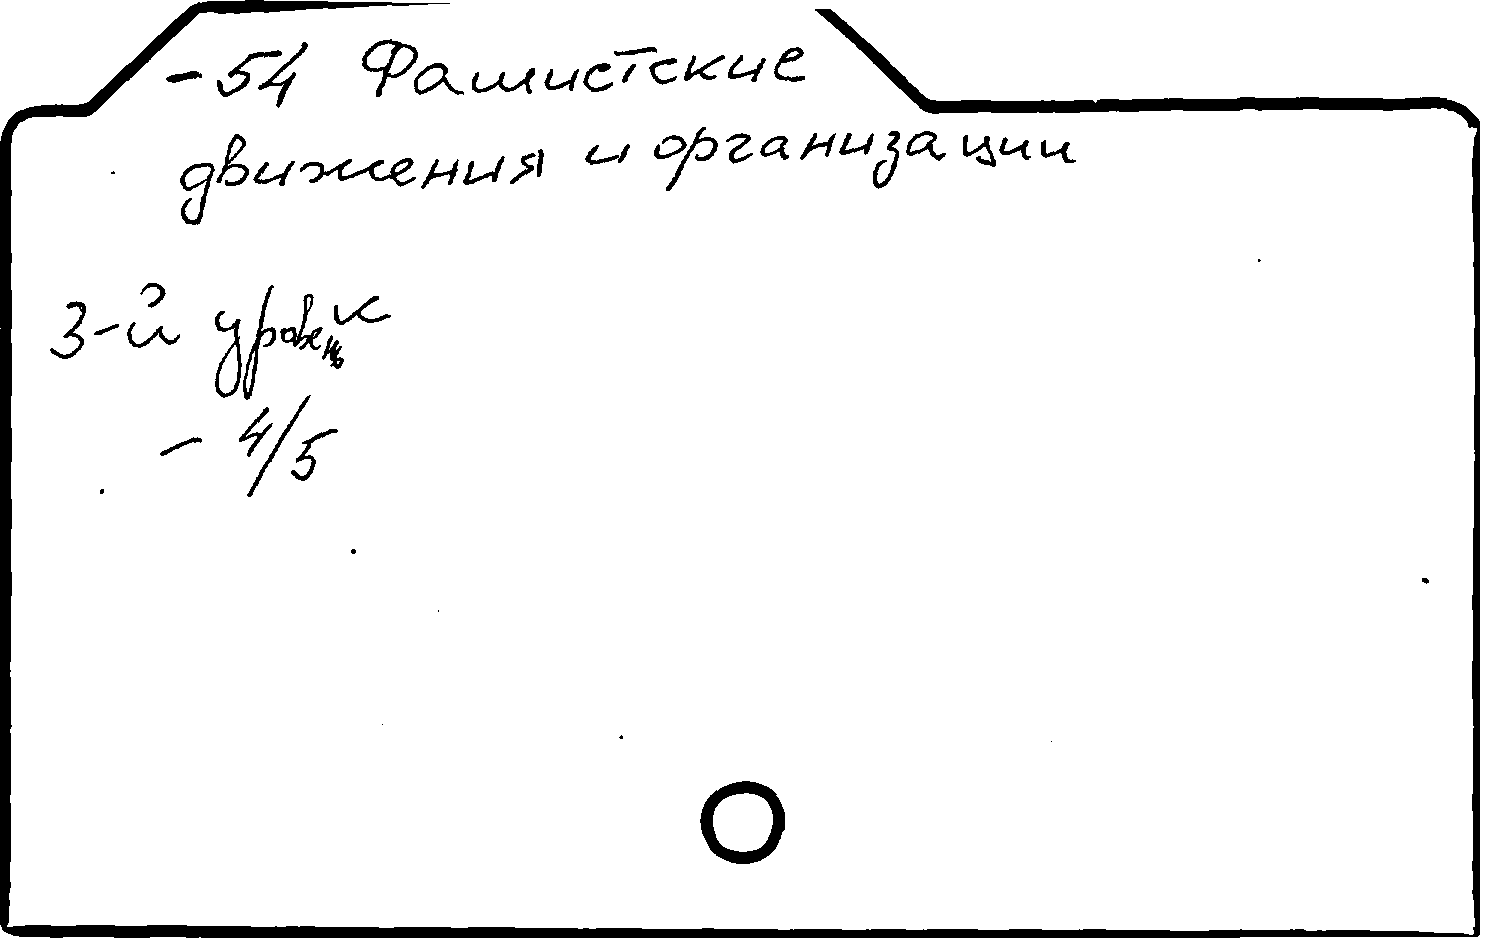 -54 Фашистские
движения и организации
3-й уровень к
- 4/5